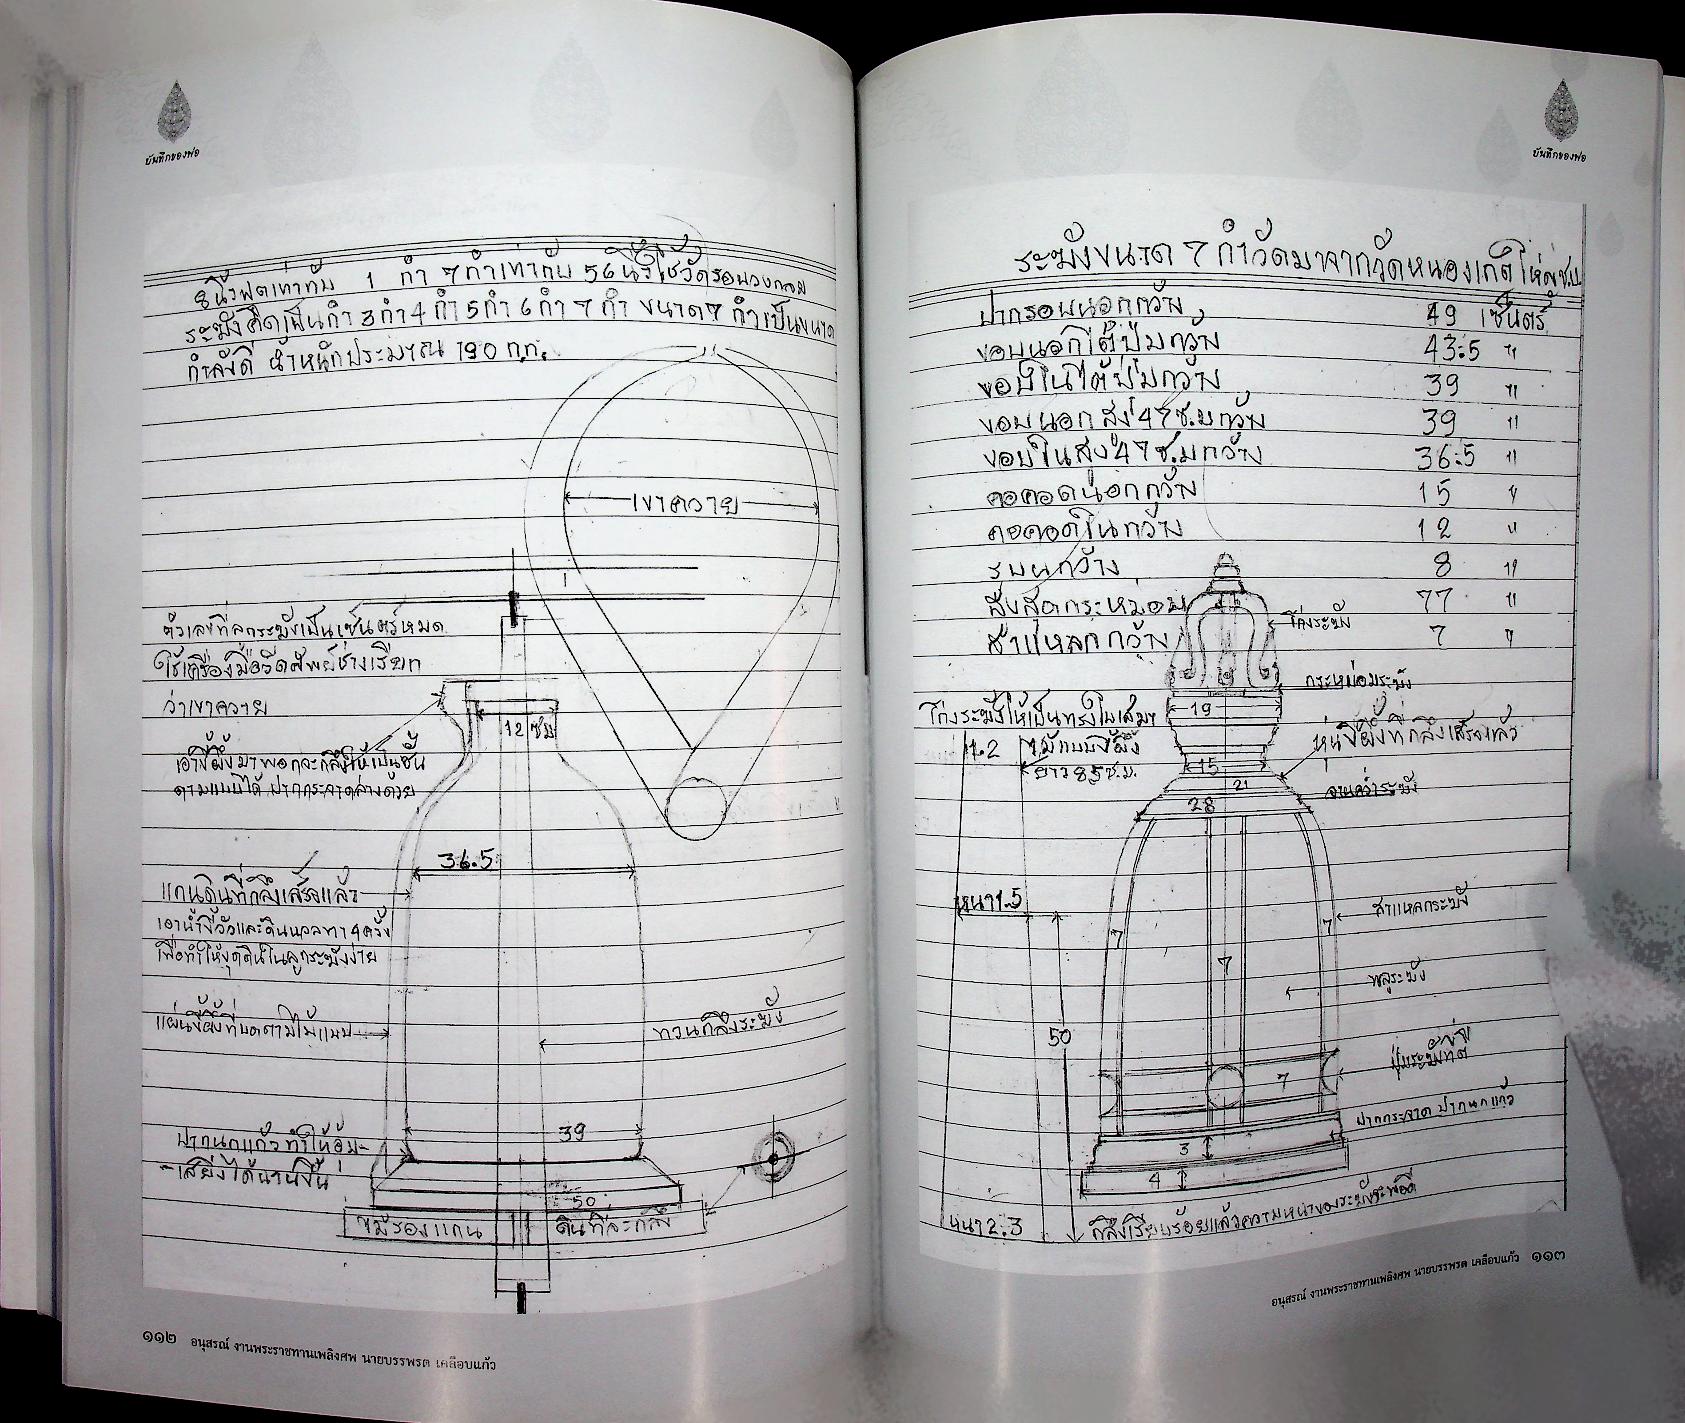 บันทึกของพ่อ
8 นิ้วฟุตเท่ากับ 1 กำ 7 กำเท่ากับ 56 นิ้วใช้วัดรอบวงกลม
ระฆังคิดเป็นกำ 3 กำ 4 กำ 5 กำ 6 กำ 7 กำ ขนาด 7 กำเป็นขนาด
กำลังดี น้ำหนักประมาณ 190 ก.ก.
เขาควาย
ตัวเลขที่ลูกระฆังเป็นเซ็นตร์หมด
ใช้เครื่องมือวัดศัพย์ช่างเรียก
ว่าเขาควาย
12 ซม
เอาขี้ผึ้งมาพอกจะกลึงให้เป็นชั้น
ตามแบบได้ ปากกระจาดล่างด้วย
36.5
แกนดินที่กลึงเสร็จแล้ว
เอาน้ำขี้วัวและดินนวลทา 4 ครั้ง
เพื่อทำให้ขุดดินในลูกระฆังง่าย
แผ่นขี้ผึ้งที่บดตามไม้แบบ
ทวนกลึงระฆัง
39
ปากนกแก้วทำให้อุ้ม
เสียงได้นานขึ้น
50
ไม้รองแกน
ดินที่จะกลึง
๑๑๒ อนุสรณ์ งานพระราชทานเพลิงศพ นายบรรพรต เคลือบแก้ว
บันทึกของพ่อ
ระฆังขนาด 7 กำวัดมาจากวัดหนองเกต
ปากรอบนอกกว้าง 49 เซ็นตร์
ขอบนอกใต้ปุ่มกว้าง 43.5 "
ขอบในใต้ปุ่มกว้าง 39 "
ขอบนอกสูง 47 ซ.ม กว้าง 39 "
ขอบในสูง 47 ซ.ม กว้าง 36.5 "
คอคอดนอกกว้าง 15 "
คอคอดในกว้าง 12 "
รูบนกว้าง 8 "
สูงสุดกระหม่อม 77 "
สาแหลกกว้าง 7 "
โก่งระฆัง
กระหม่อมระฆัง
โก่งระฆังให้เป็นทรงใบเสมา
19
หุ่นขี้ผึ้งที่กลึงเสร็จแล้ว
1.2
ไม้แบบขี้ผึ้ง
ยาว 85 ซ.ม.
15
21
จานคว่ำระฆัง
28
หนา 1.5
สาแหลกระฆัง
7
7
7
พลูระฆัง
50
7
ปากกระจาด ปากนกแก้ว
3
4
หนา 2.3
กลึงเรียบร้อยแล้วความหนาของระฆังจะพอดี
อนุสรณ์ งานพระราชทานเพลิงศพ นายบรรพรต เคลือบแก้ว ๑๑๓